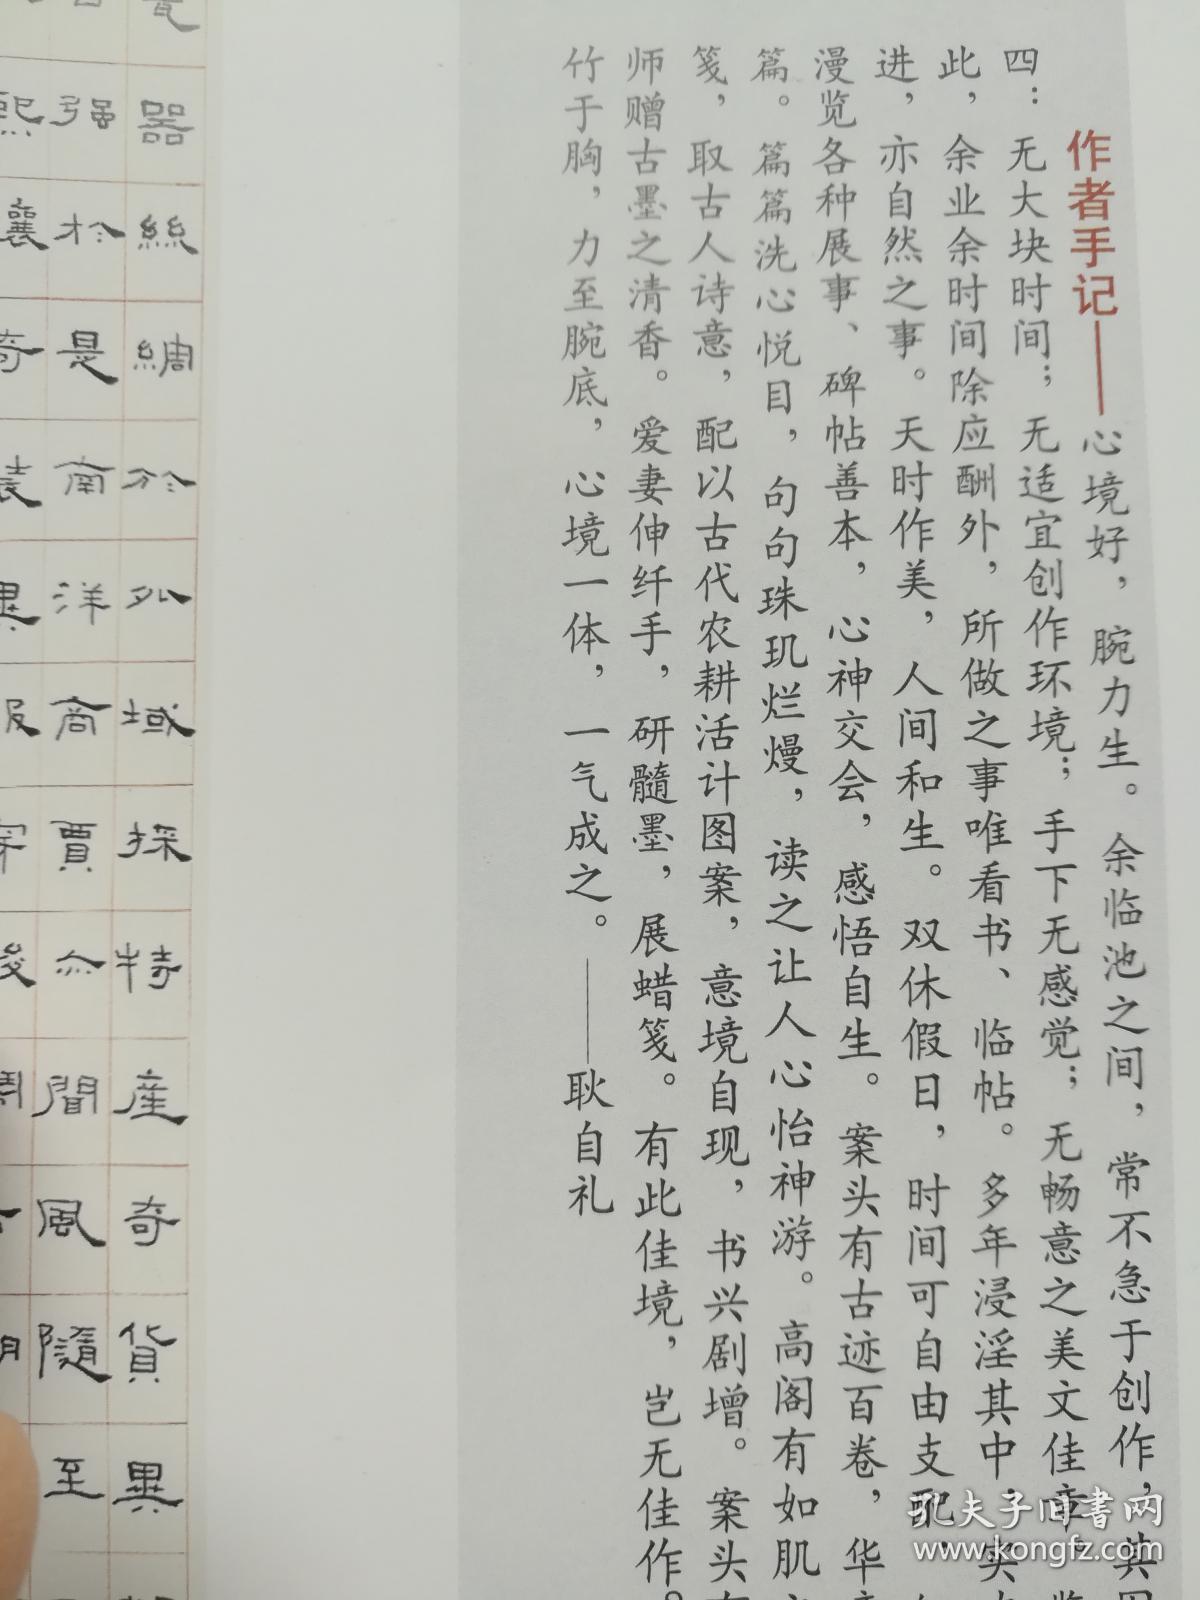 作者手记——心境好，腕力生。余临池之间，常不急于创作，其因
四：无大块时间；无适宜创作环境；手下无感觉；无畅意之美文佳章。鉴
此，余业余时间除应酬外，所做之事唯看书、临帖。多年浸淫其中，实
进，亦自然之事。天时作美，人间和生。双休假日，时间可自由支配，
漫览各种展事、碑帖善本，心神交会，感悟自生。案头有古迹百卷，华
篇。篇篇洗心悦目，句句珠玑烂熳，读之让人心怡神游。高阁有如肌
笺，取古人诗意，配以古代农耕活计图案，意境自现，书兴剧增。案头
师赠古墨之清香。爱妻伸纤手，研髓墨，展蜡笺。有此佳境，岂无佳作。
竹于胸，力至腕底，心境一体，一气成之。——耿自礼
器絲綢於外域採特産奇貨異
强於是南洋商賈間風隨至
熙襄奇装異服
孔夫子旧书网
www.kongfz.com